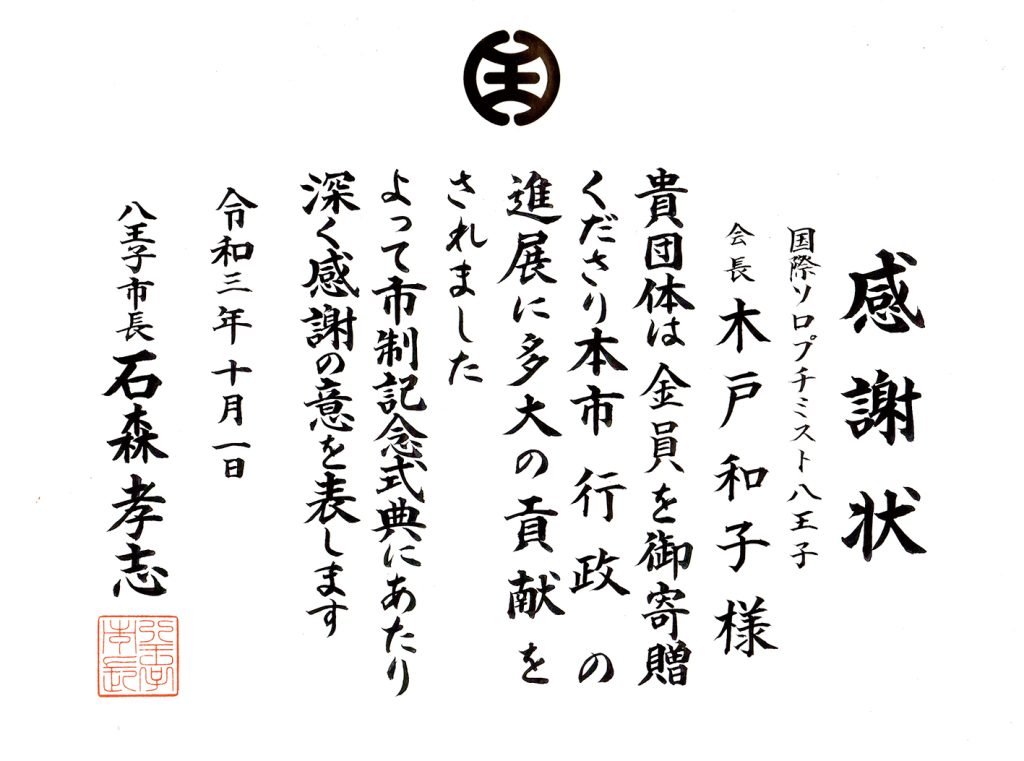 感謝状
国際ソロプチミスト八王子
会長 木戸和子様
貴団体は金員を御寄贈
くださり本市行政の
進展に多大の貢献を
されました
よって市制記念式典にあたり
深く感謝の意を表します
令和三年十月一日
八王子市長 石森孝志
八王子市長